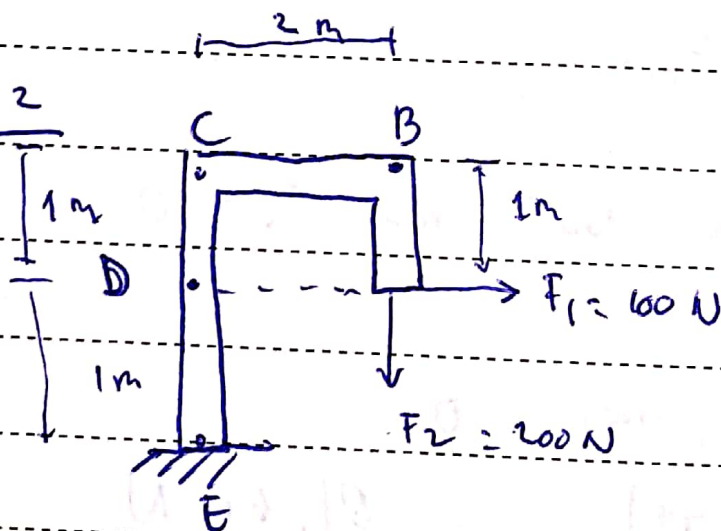 2 m
2
C B
1 m 1m
D F₁ = 100 N
1 m
F2 = 200 N
E